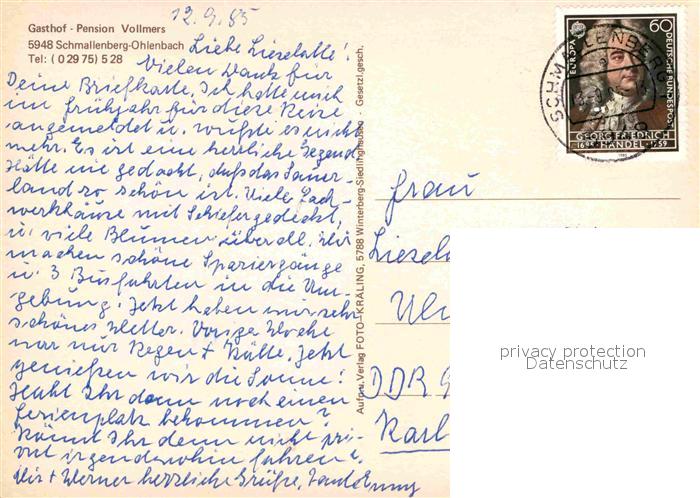 12.9.85
Gasthof - Pension Vollmers
5948 Schmallenberg-Ohlenbach
Tel: (0 29 75) 5 28
Liebe Lieselotte!
Vielen Dank für
Deine Briefkarte. Ich hatte mich
im Frühjahr für diese Reise
angemeldet u. wußte es nicht
mehr. Es ist eine herrliche Gegend
Hätte nie gedacht, daß das Sauer-
land so schön ist. Viele Fach-
werkhäuse mit Schiefer gedeckt,
u. viele Blumen überall. Wir
machen schöne Spaziergänge
u. 3 Busfahrten in die Um-
gebung. Jetzt haben wir sehr
schönes Wetter. Vorige Woche
war nur Regen + Kälte. Jetzt
genießen wir die Sonne!
Habt Ihr denn noch einen
Ferienplatz bekommen?
Könnt Ihr denn nicht pri-
vat irgendwohin fahren?
+ Werner herzliche Grüße,
Aufn. u. Verlag FOTO-KRÄLING, 5788 Winterberg-Siedlinghausen - Gesetzl. gesch.
EUROPA
60
DEUTSCHE BUNDESPOST
GEORG FRIEDRICH
1685 HÄNDEL 1759
1985
SCHMALLENBERG
Frau
DDR
privacy protection
Datenschutz